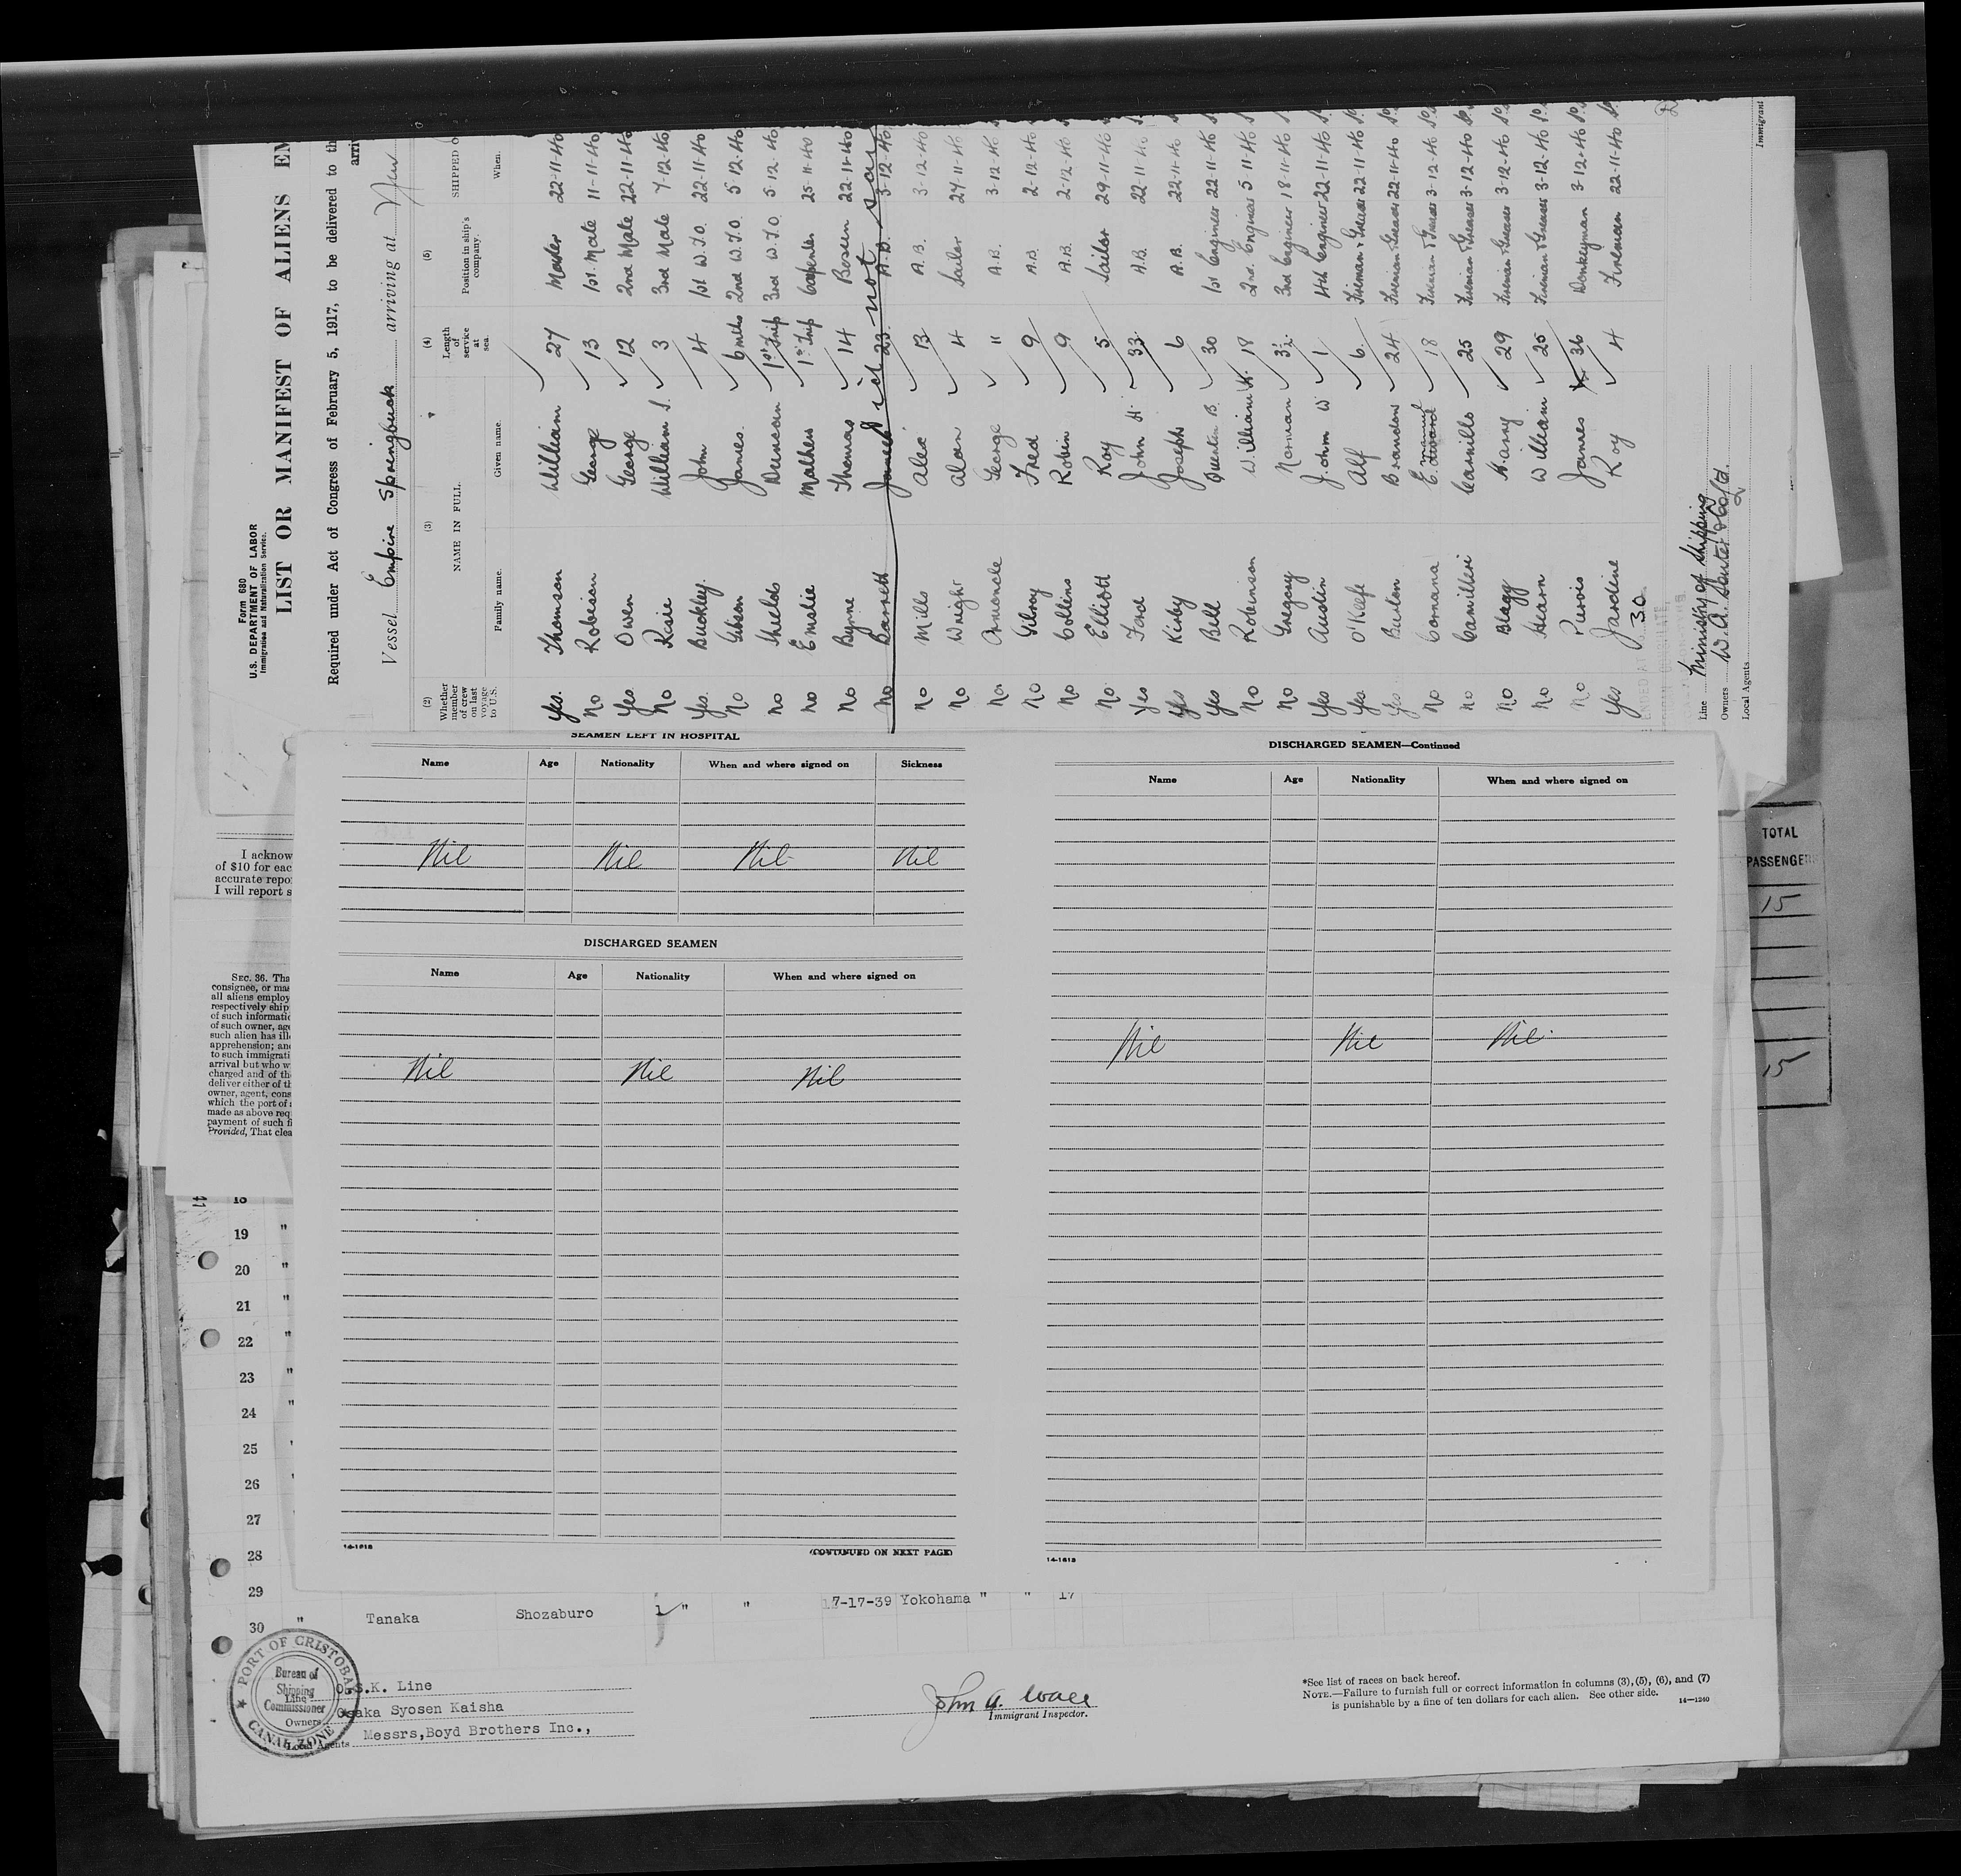 Form 680
U.S. DEPARTMENT OF LABOR
Immigration and Naturalization Service.
LIST OR MANIFEST OF ALIENS EM
Required under Act of Congress of February 5, 1917, to be delivered to th
arri
Vessel Empire Springbuck arriving at New
(2) (3) (4) (5)
Whether member of crew on last voyage to U.S. NAME IN FULL Length of service at sea. Position in ship's company. SHIPPED O
Family name. Given name. When.
Yes. Thomson William 27 Master 22-11-40
No Robison George 13 1st. Mate 11-11-40
Yes Owen George 12 2nd Mate 22-11-40
No Rosie William S. 3 3rd Mate 7-12-40
Yes. Buckley. John 4 1st W.T.O. 22-11-40
No Gibson James. 6 mths 2nd W.T.O. 5-12-40
no Shields Duncan 1st Trip 3rd W.T.O. 5-12-40
no Emslie Mathew 1st Trip Carpenter 25-11-40
no Byrne Thomas 14 Bosun 22-11-40
No Barrett James 23. A.B. 3-12-40
did not sail
no Mills Alec 13 A.B. 3-12-40
no Wright Alan 4 Sailor 27-11-40
No George 11 A.B. 3-12-40
no Gilroy Fred 9 A.B. 2-12-40
no Collins Robin 9 A.B. 2-12-40
No Elliott Roy 5 Sailor 29-11-40
Yes Ford John H. 33. A.B. 22-11-40
Yes Kirby Joseph 6 A.B. 22-11-40
Yes Bell Quentin B. 30 1st Engineer 22-11-40
No Robinson William H. 18 2nd. Engineer 5-11-40
No Gregory Norman 3½ 3rd Engineer 18-11-40
Yes Austin John W 1 4th Engineer 22-11-40
Yes O'Keefe Alf 6. Fireman & Greaser 22-11-40
Yes Burton Brandon 24 Fireman & Greaser 22-11-40
No Cornana E. Emanuel 18 Fireman & Greaser 3-12-40
no Camilleri Carmillo 25 Fireman & Greaser 3-12-40
No Blagg Harry 29 Fireman & Greaser 3-12-40
No Hearn William 25 Fireman & Greaser 3-12-40
no Purvis James 36 Donkeyman 3-12-40
Yes Jardine Roy 4 Fireman 22-11-40
30
Line Ministry of Shipping
Owners W. A. Souter & Co Ltd.
Local Agents
Immigrant
SEAMEN LEFT IN HOSPITAL
Name Age Nationality When and where signed on Sickness
Nil Nil Nil Nil
DISCHARGED SEAMEN
Name Age Nationality When and where signed on
Nil Nil Nil
14-1613
(CONTINUED ON NEXT PAGE)
DISCHARGED SEAMEN—Continued
Name Age Nationality When and where signed on
Nil Nil Nil
14-1613
TOTAL
PASSENGER
15
15
I acknow
of $10 for eac
accurate repo
I will report s
SEC. 36. Tha
consignee, or mas
all aliens employ
respectively ship
of such informatio
of such owner, age
such alien has ille
apprehension; and
to such immigrati
arrival but who w
charged and of the
deliver either of th
owner, agent, cons
which the port of a
made as above req
payment of such fi
Provided, That clea
18
19 "
20 "
21 "
22 "
23 "
24 "
25
26
27
28
29
30 " Tanaka Shozaburo 1 " " 7-17-39 Yokohama " " 17
PORT OF CRISTOBAL
Bureau of
Shipping
Commissioner
CANAL ZONE
Line O.S.K. Line
Owners Osaka Syosen Kaisha
Local Agents Messrs,Boyd Brothers Inc.,
John A. Wall
Immigrant Inspector.
*See list of races on back hereof.
NOTE.—Failure to furnish full or correct information in columns (3), (5), (6), and (7)
is punishable by a fine of ten dollars for each alien. See other side.
14—1240